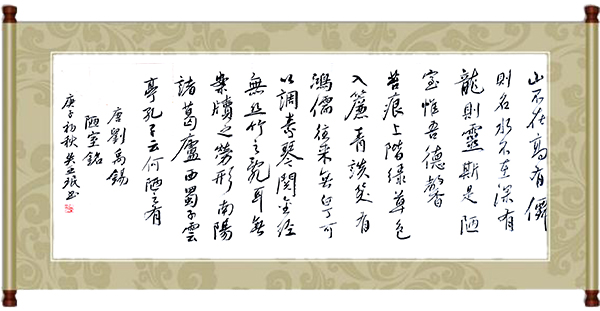 山不在高有僊
則名水不在深有
龍則靈斯是陋
室惟吾德馨
苔痕上階緑草色
入簾青談笑有
鴻儒往来無白丁可
以調素琴閱金經
無丝竹之乱耳無
案牘之勞形南陽
諸葛廬西蜀子雲
亭孔子云何陋之有
唐劉禹錫
陋室銘
庚子初秋吴珉书